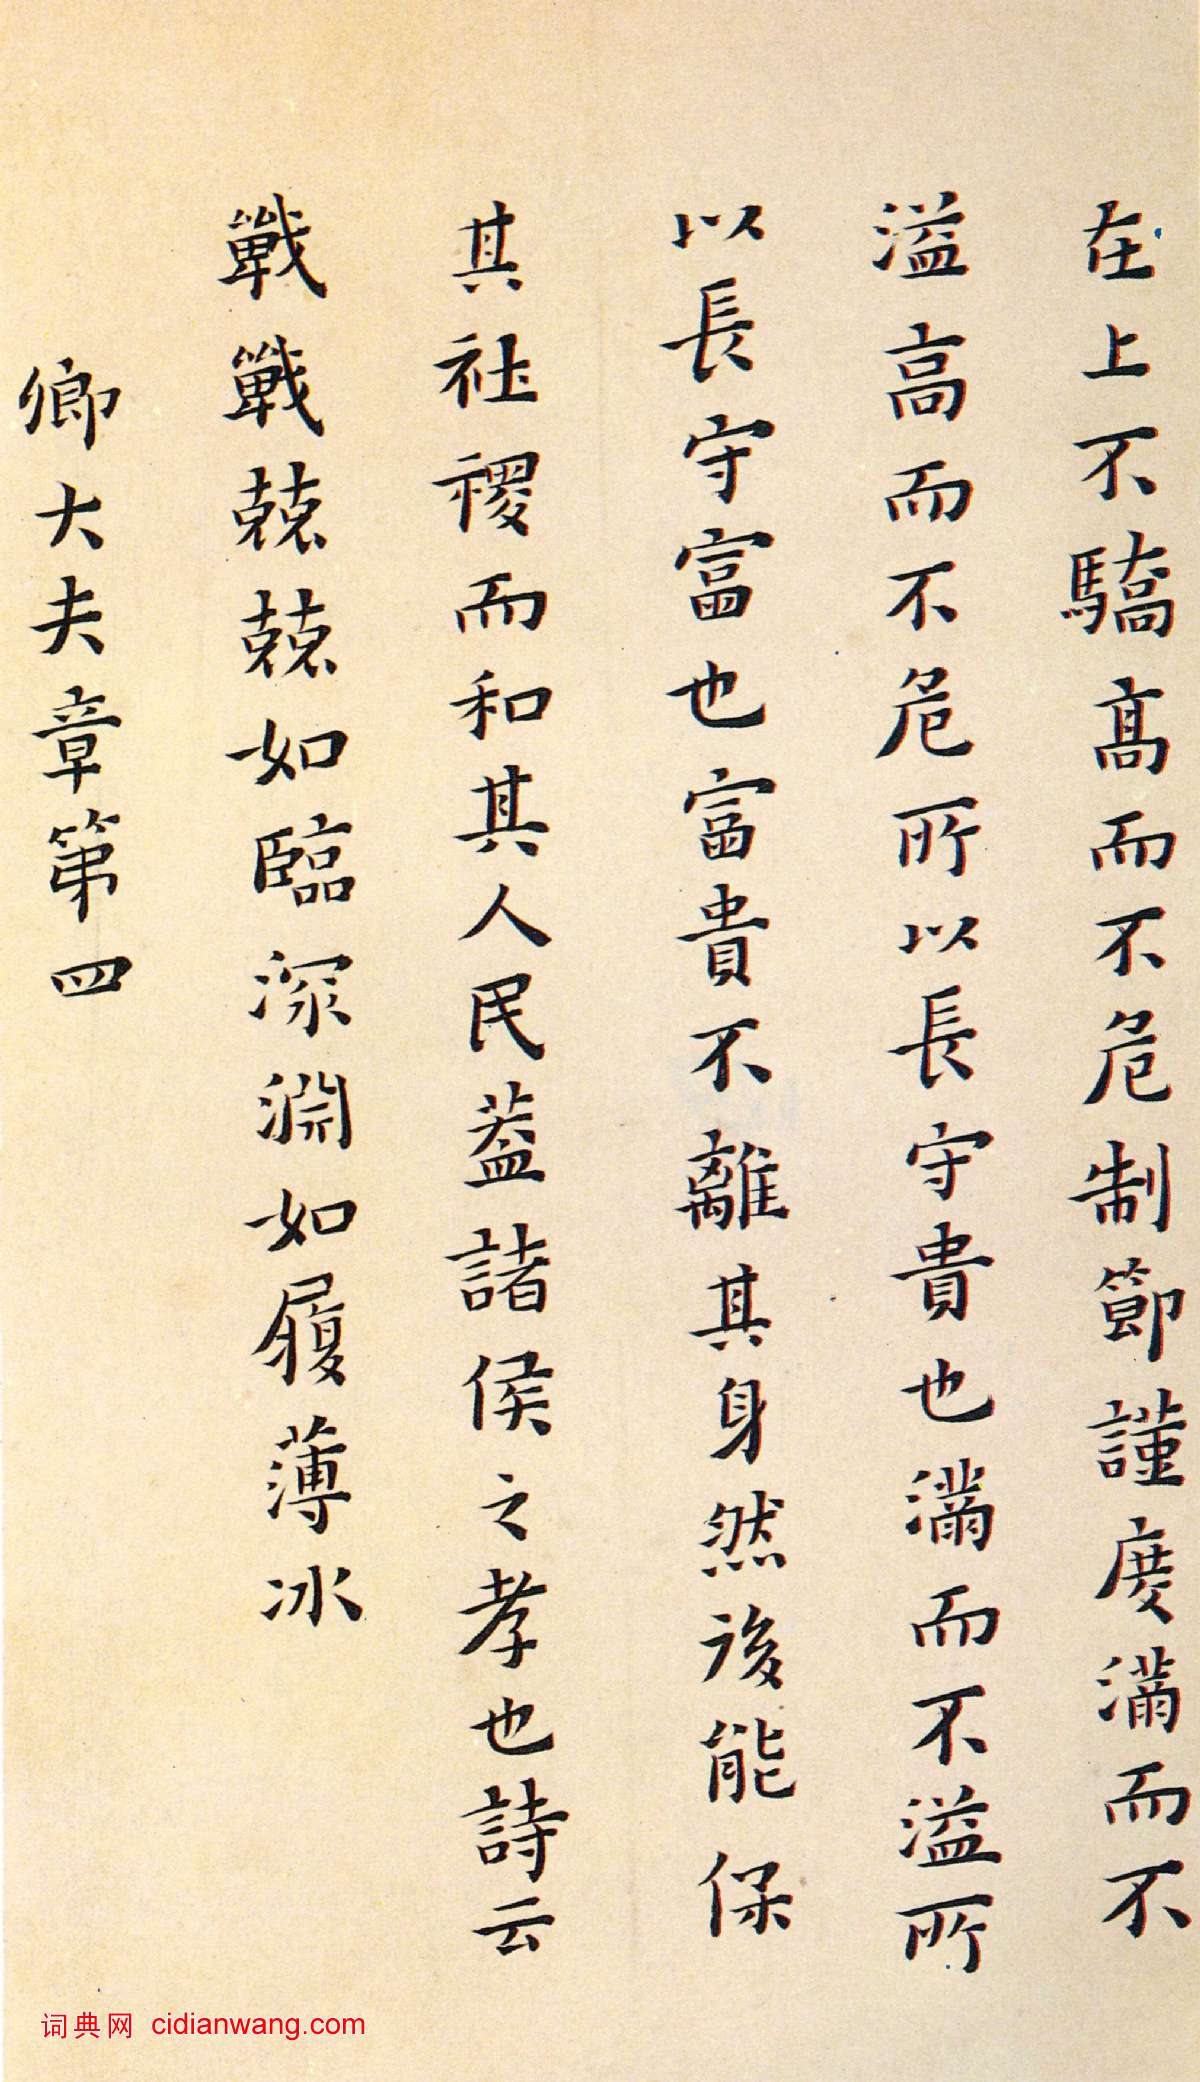 在上不驕髙而不危制節謹度滿而不
溢高而不危所以長守貴也滿而不溢所
以長守富也富貴不離其身然後能保
其社稷而和其人民蓋諸侯之孝也詩云
戰戰兢兢如臨深淵如履薄冰
卿大夫章第四
词典网 cidianwang.com